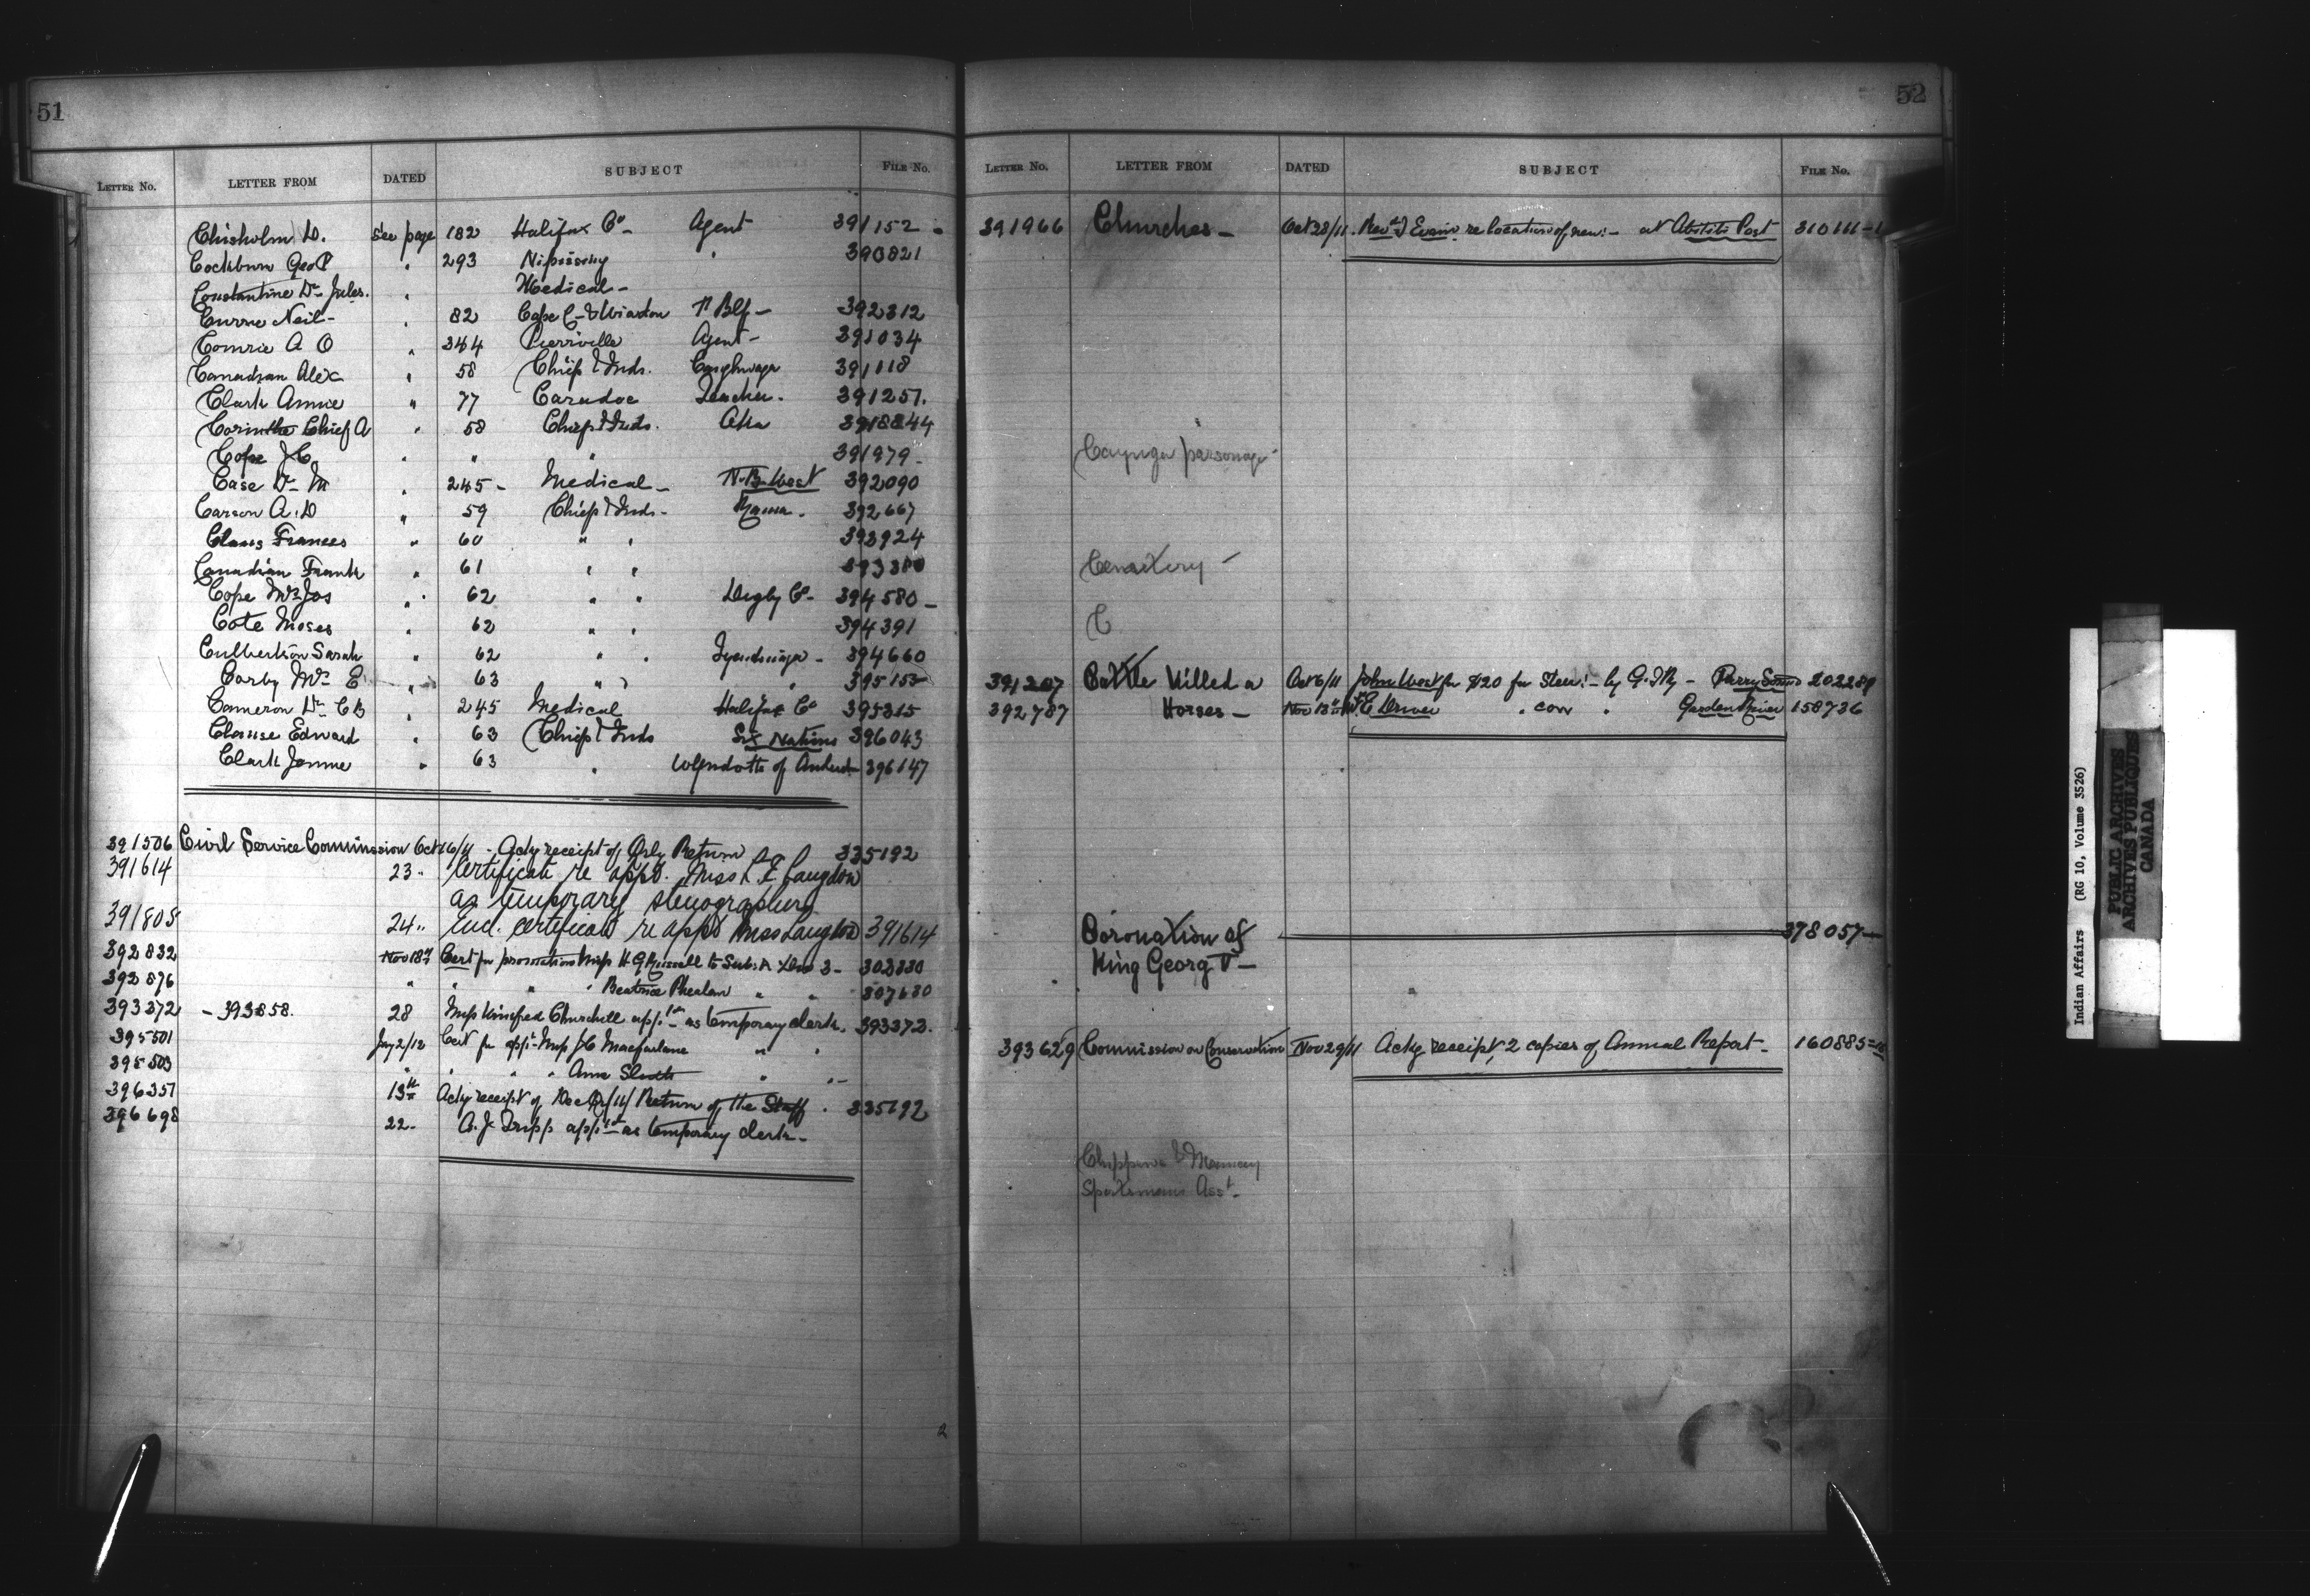 51
LETTER NO. LETTER FROM DATED SUBJECT FILE NO.
Chisholm D. See page 182 Halifax Co - Agent 391152 -
Cockburn Geo P " 293 Nipissing " 390821
Constantine Dr Jules. " Medical -
Currie Neil - " 82 Cape C - & Wiarton 392312
Comrie A O " 344 Pierreville Agent - 391034
Canadian Alex " 58 Chiefs & Inds. Caughnawaga 391118
Clark Annie " 77 Caradoc Teacher. 391251.
Corinthe Chief A " 58 Chiefs & Inds. Oka 3918844
Cope J C " " " 391979 -
Case Dr M " 245 - Medical - N.B. West 392090
Carson A. D " 59 Chiefs & Inds - Rama. 392667
Claus Frances " 60 " " 393924
Canadian Frank " 61 " "
Cope Mrs Jos " 62 " " Digby Co - 394580 -
Cote Moses " 62 " " 394391
Culbertson Sarah " 62 " " Tyendinaga - 394660
Corby Mrs E " 63 " " " 395155
Cameron Dr C B " 245 Medical Halifax Co 395315
Clause Edward " 63 Chiefs & Inds Six Nations 396043
Clark Jennie " 63 " Wyndotts of Anderd - 396147
391506 Civil Service Commission Oct 16/11 - Ackg receipt of Qrly Return 335192
391614 23 - Certificate re appt. Miss L. E. Langdon
as temporary stenographer
391805 24 " Encl. certificate re appt Miss Langdon 391614
392832 Nov 18th Cert for promotion Miss H G Russell to Sub: A Div 3 - 303330
392876 " " " " Beatrice Phealan " " 307630
393372 - 393858. 28 Miss Winifred Churchill appt as temporary clerk. 393372.
395501 Jay 2/12 Cert for appt - Miss J C Macfarlane " "
395503 " " " " Anna " " -
396351 13th Ackg receipt of Dec Qr/11/ Return of the Staff . 335192
396698 22 - A. J. Tripp appt as temporary clerk -
2
52
LETTER NO. LETTER FROM DATED SUBJECT FILE NO.
391966 Churches - Oct 28/11. Revd J Evans re location of new: - at Abitibi Post 310111-1
Cayuga parsonage -
Cemetery -
C
391207 Cattle Killed Oct 6/11 John West for $20 for Steer: - by G.T.Ry - Parry Sound 202289
392787 Horses - Nov 13th E Driver " cow " Garden River 158736
Coronation of 378057 -
King Georg V -
393629 Commission on Conservation Nov 29/11 Ackg receipt 2 copies of Annual Report - 160885-
Chippewa & Munsey
Sportsmans Asst -
Indian Affairs (RG 10, Volume 3526)
PUBLIC ARCHIVES
ARCHIVES PUBLIQUES
CANADA